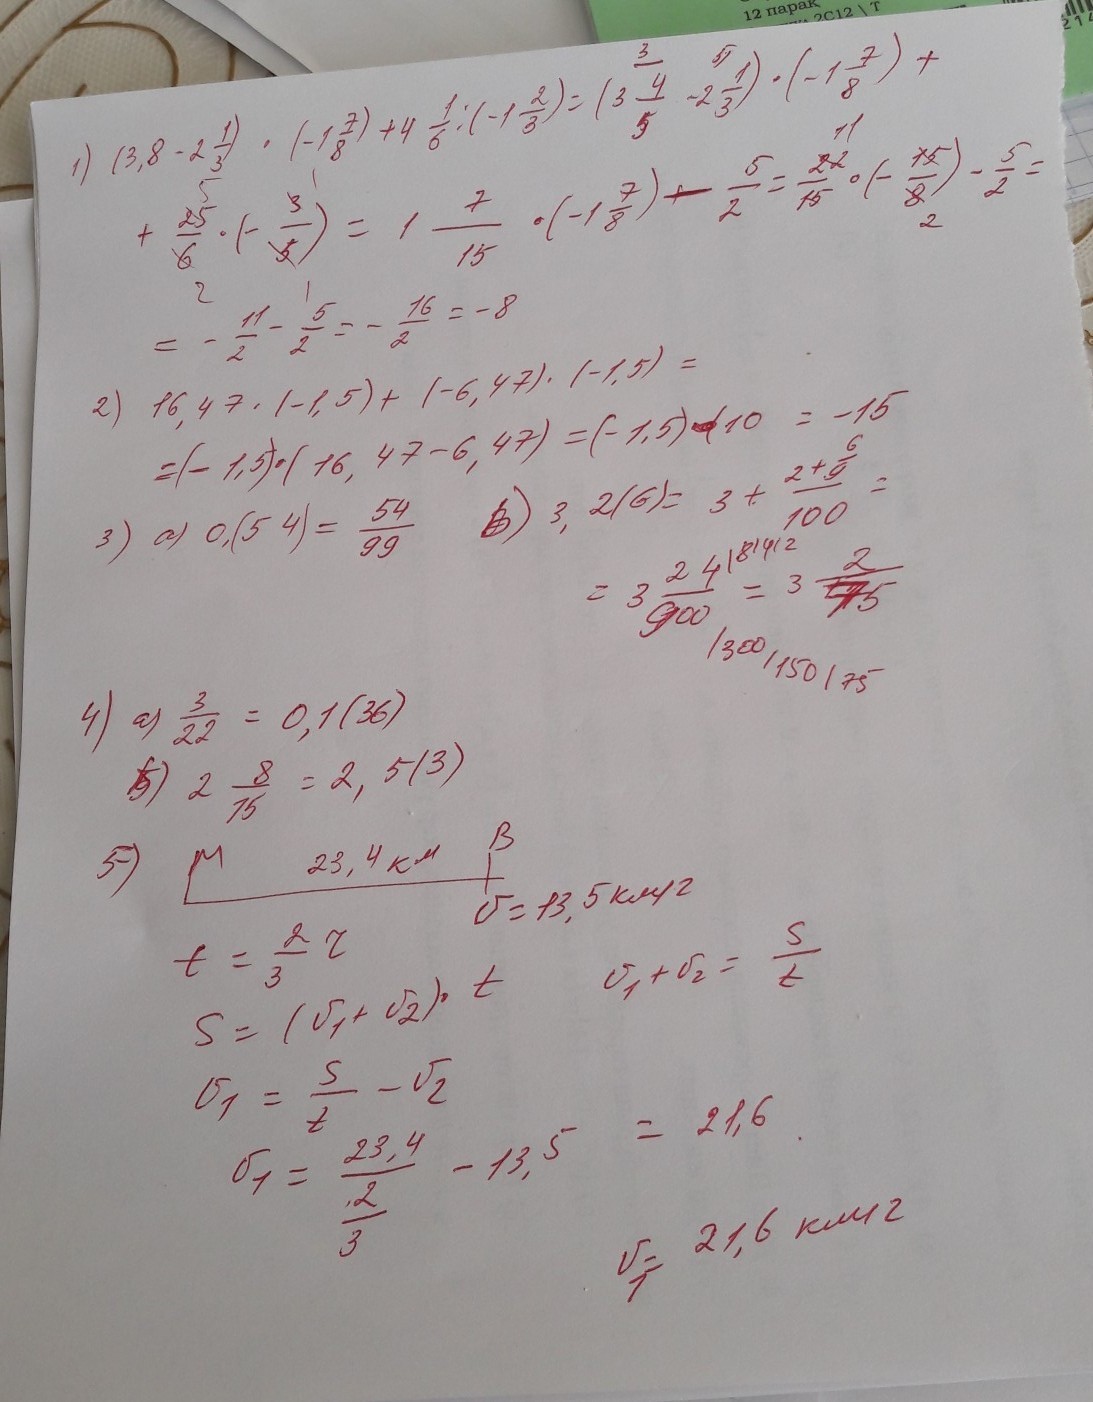 12 парак
2С12 \ Т
1) (3,8 - 2 1/3) · (-1 7/8) + 4 1/6 : (-1 2/3) = (3 4/5 - 2 1/3) · (-1 7/8) +
+ 25/6 · (- 3/5) = 1 7/15 · (-1 7/8) - 5/2 = 22/15 · (- 15/8) - 5/2 =
= - 11/2 - 5/2 = - 16/2 = -8
2) 16,47 · (-1,5) + (-6,47) · (-1,5) =
=(-1,5) · (16,47 - 6,47) = (-1,5) · 10 = -15
3) а) 0,(54) = 54/99 б) 3,2(6) = 3 + (2 + 6/9)/100 =
= 3 24/900 |8|4|2 /300/150/75 = 3 2/75
4) а) 3/22 = 0,1(36)
б) 2 8/15 = 2,5(3)
5) М 23,4 км В
v = 13,5 км/ч
t = 2/3 ч
S = (v1 + v2) · t v1 + v2 = S/t
v1 = S/t - v2
v1 = 23,4/(2/3) - 13,5 = 21,6
v1 = 21,6 км/ч